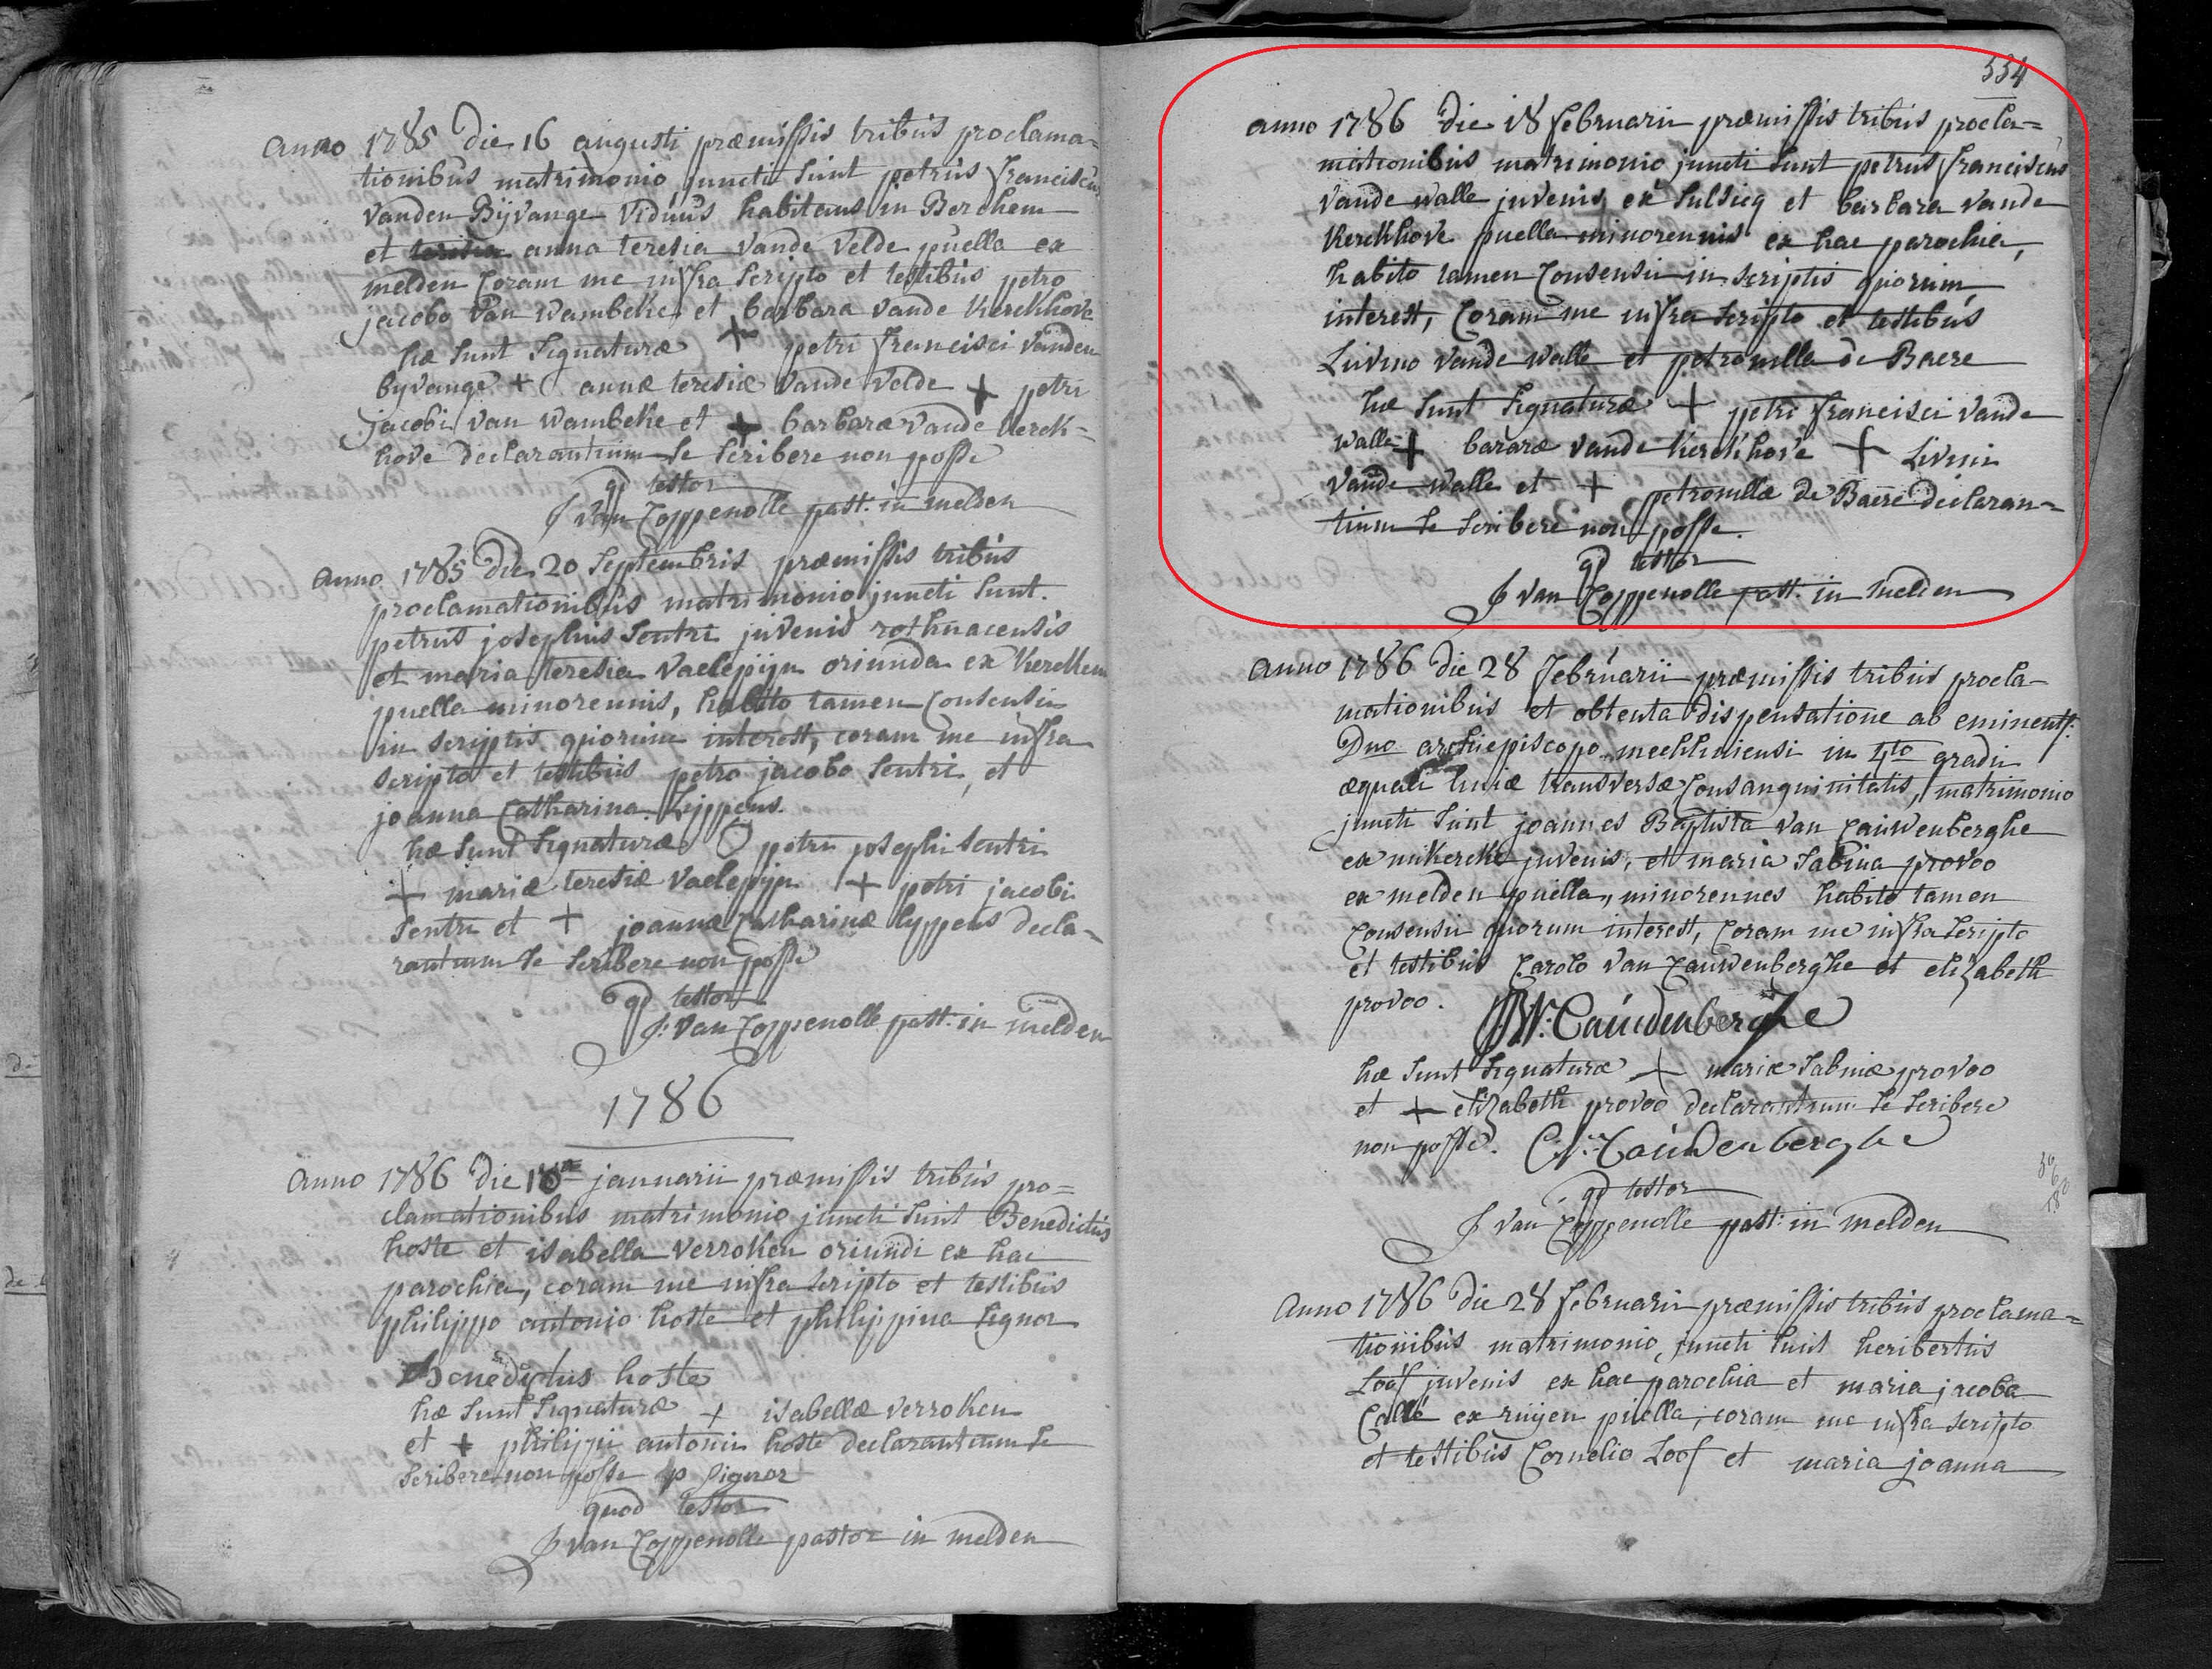 Anno 1785 die 16 augusti præmissis tribus proclama-
tionibus matrimonio juncti sunt petrus franciscus
vanden Bÿvange viduus habitans in Berchem
et anna teresia vande velde puella ex
melden coram me infra scripto et testibus petro
jacobo van wambeke et barbara vande kerckhove
hæ sunt signaturæ + petri francisci vanden
byvange + annæ teresiæ vande velde + petri
jacobi van wambeke et + barbaræ vande kerck-
hove declarantium se scribere non posse
qd testor
J van Coppenolle past: in melden
Anno 1785 die 20 septembris præmissis tribus
proclamationibus matrimonio juncti sunt.
petrus josephus sentri juvenis rothnacensis
et maria teresia vaelepijn oriunda ex kerckem
puella minorennis, habito tamen consensu
in scriptis quorum interest, coram me infra
scripto et testibus petro jacobo sentri, et
joanna catharina Lijppens.
hæ sunt signaturæ O petri josephi sentri
+ mariæ teresiæ vaelepijn + petri jacobi
sentri et + joannæ catharinæ lyppens decla-
rantium se scribere non posse
qd testor
J: van Coppenolle past: in melden
1786
Anno 1786 die januarii præmissis tribus pro=
clamationibus matrimonio juncti sunt Benedictus
hoste et isabella verroken oriundi ex hac
parochia, coram me infra scripto et testibus
philippo antonio hoste et philippina signor
Benedictus hoste
hæ sunt signaturæ + isabellæ verroken
et + philippi antonii hoste declarantium se
scribere non posse p signor
quod testor
J van Coppenolle pastor in melden
334
anno 1786 die 18 februarii præmissis tribus procla=
mationibus matrimonio juncti sunt petrus franciscus
vande walle juvenis ex sulsicq et barbara vande
kerckhove puella minorennis ex hac parochia,
habito tamen consensu in scriptis quorum
interest, coram me infra scripto et testibus
Livino vande walle et petronilla de Baere
hæ sunt signaturæ + petri francisci vande
walle + bararæ vande kerckhove + Livini
vande walle et + petronillæ de Baere declaran=
tium se scribere non posse.
qd testor
J van Coppenolle past: in melden
anno 1786 die 28 februarii præmissis tribus procla-
mationibus et obtenta dispensatione ab eminentss:
Dno archiepiscopo mechliniensi in 4to gradu
æquali liniæ transversæ consanguinitatis, matrimonio
juncti sunt joannes Baptista van cauwenberghe
ex nukercke juvenis, et maria sabina provoo
ex melden puella, minorennes habito tamen
consensu quorum interest, coram me infra scripto
et testibus carolo van cauwenberghe et elizabeth
provoo. Caudenberghe
hæ sunt signaturæ + mariæ sabinæ provoo
et + elizabeth provoo declarantium se scribere
non posse. C. V. Caudenberghe
qd testor
J van Coppenolle past: in melden
Anno 1786 die 28 februarii præmissis tribus proclama=
tionibus matrimonio, juncti sunt heribertus
Loof juvenis ex hac parochia et maria jacoba
Callé ex ruyen puella, coram me infra scripto
et testibus cornelio Loof et maria joanna